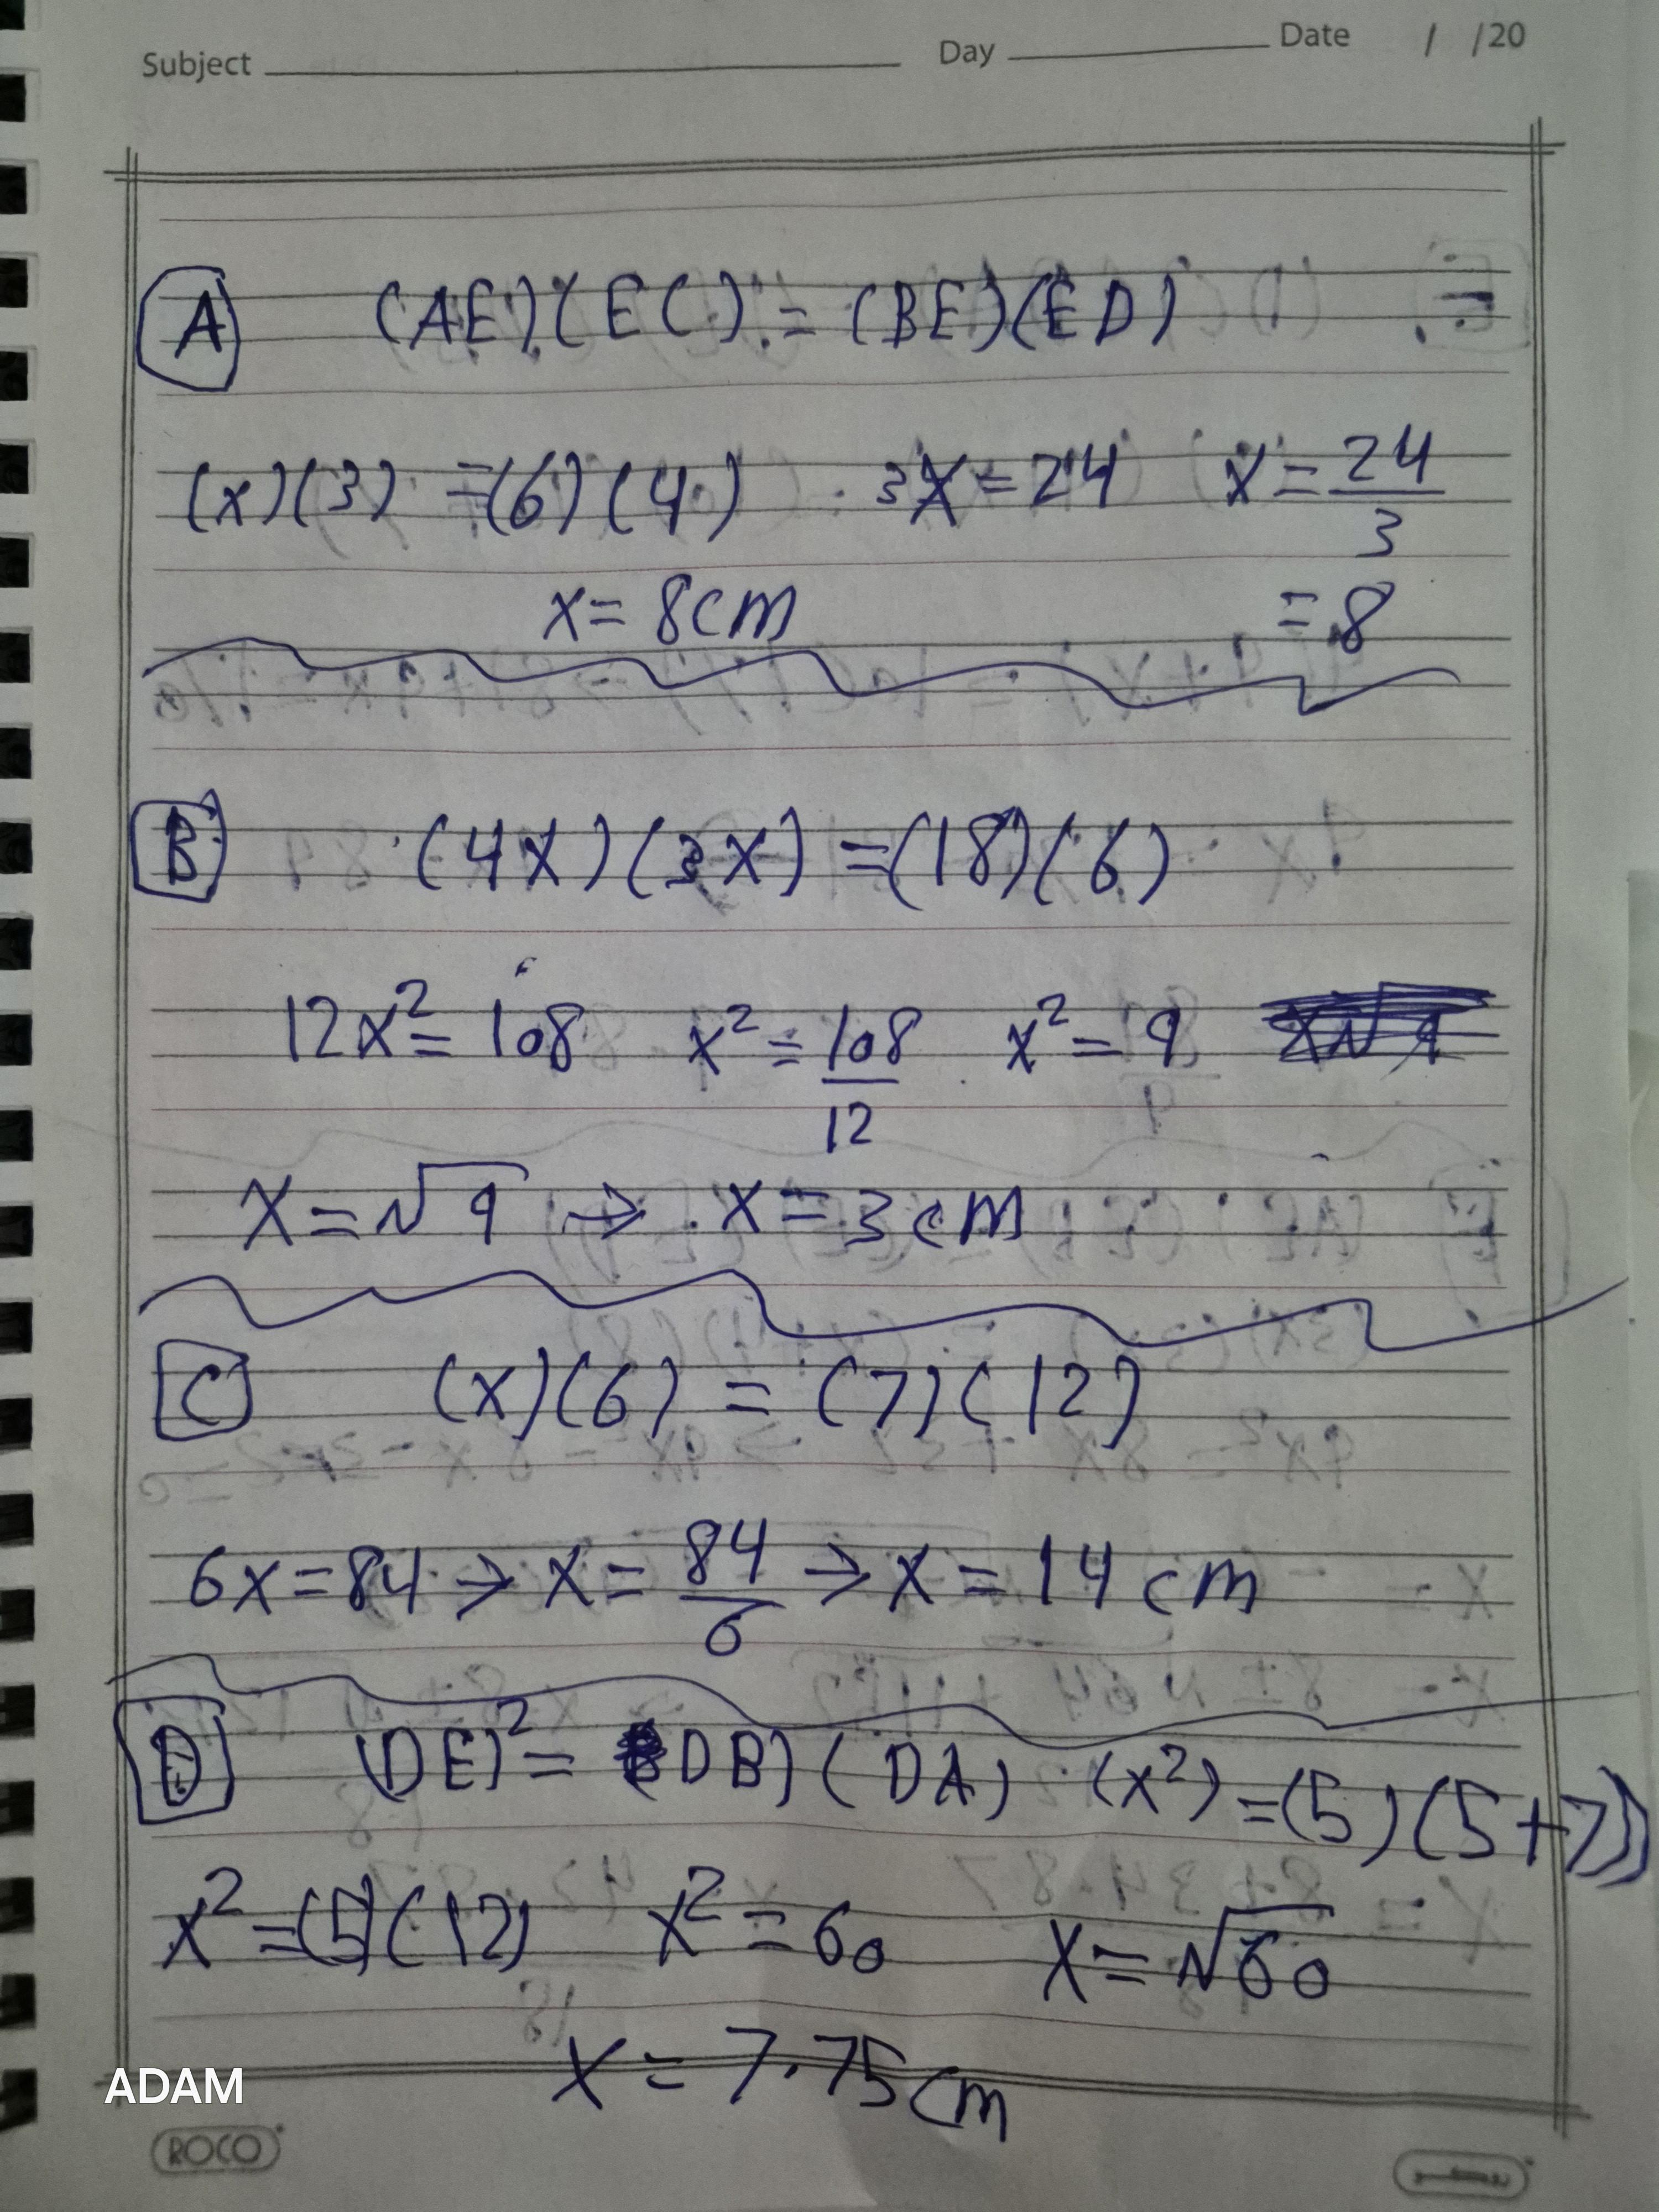 Subject Day Date / /20
A (AE)(EC) = (BE)(ED)
(x)(3) =(6)(4) 3x=24 x=24/3
x= 8cm =8
B (4x)(3x) =(18)(6)
12x²= 108 x²=108/12 x²=9
x=√9 → x=3cm
C (x)(6) = (7)(12)
6x=84 → x=84/6 → x=14 cm
D (DE)²= (DB)(DA) (x²)=(5)(5+7)
x²=(5)(12) x²=60 x=√60
x=7.75cm
ADAM
ROCO